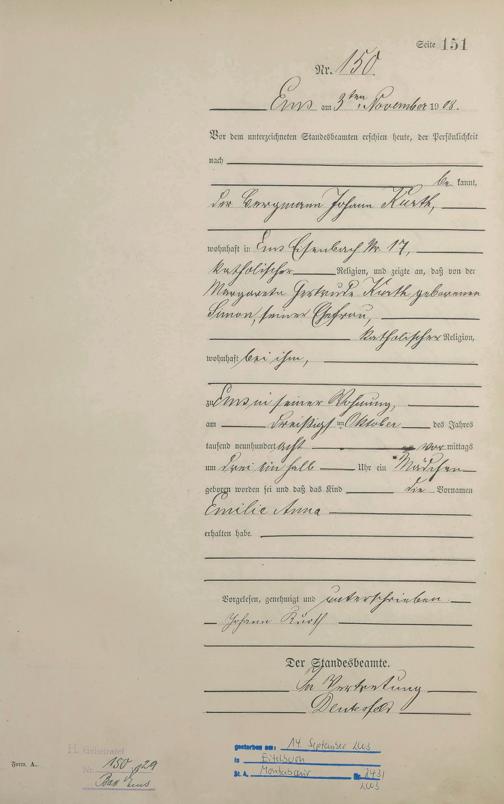 Seite 151
Nr. 150.
Ems am 3ten November 1908.
Vor dem unterzeichneten Standesbeamten erschien heute, der Persönlichkeit
nach
be kannt,
der Bergmann Johann Kurth,
wohnhaft in Ems Eisenbach Nr. 17,
katholischer Religion, und zeigte an, daß von der
Margareta Gertrude Kurth geborenen
Simon, seiner Ehefrau,
katholischer Religion,
wohnhaft bei ihm,
zu Ems in seiner Wohnung,
am dreißigsten Oktober des Jahres
tausend neunhundert acht vor mittags
um drei ein halb Uhr ein Mädchen
geboren worden sei und daß das Kind die Vornamen
Emilie Anna
erhalten habe.
Vorgelesen, genehmigt und unterschrieben
Johann Kurth
Der Standesbeamte.
In Vertretung
gestorben am: 14. September 2003
in
St. A. Montabaur Nr. 2003
Form. A.
H. Geheiratet
Nr. 150 29
Bad Ems